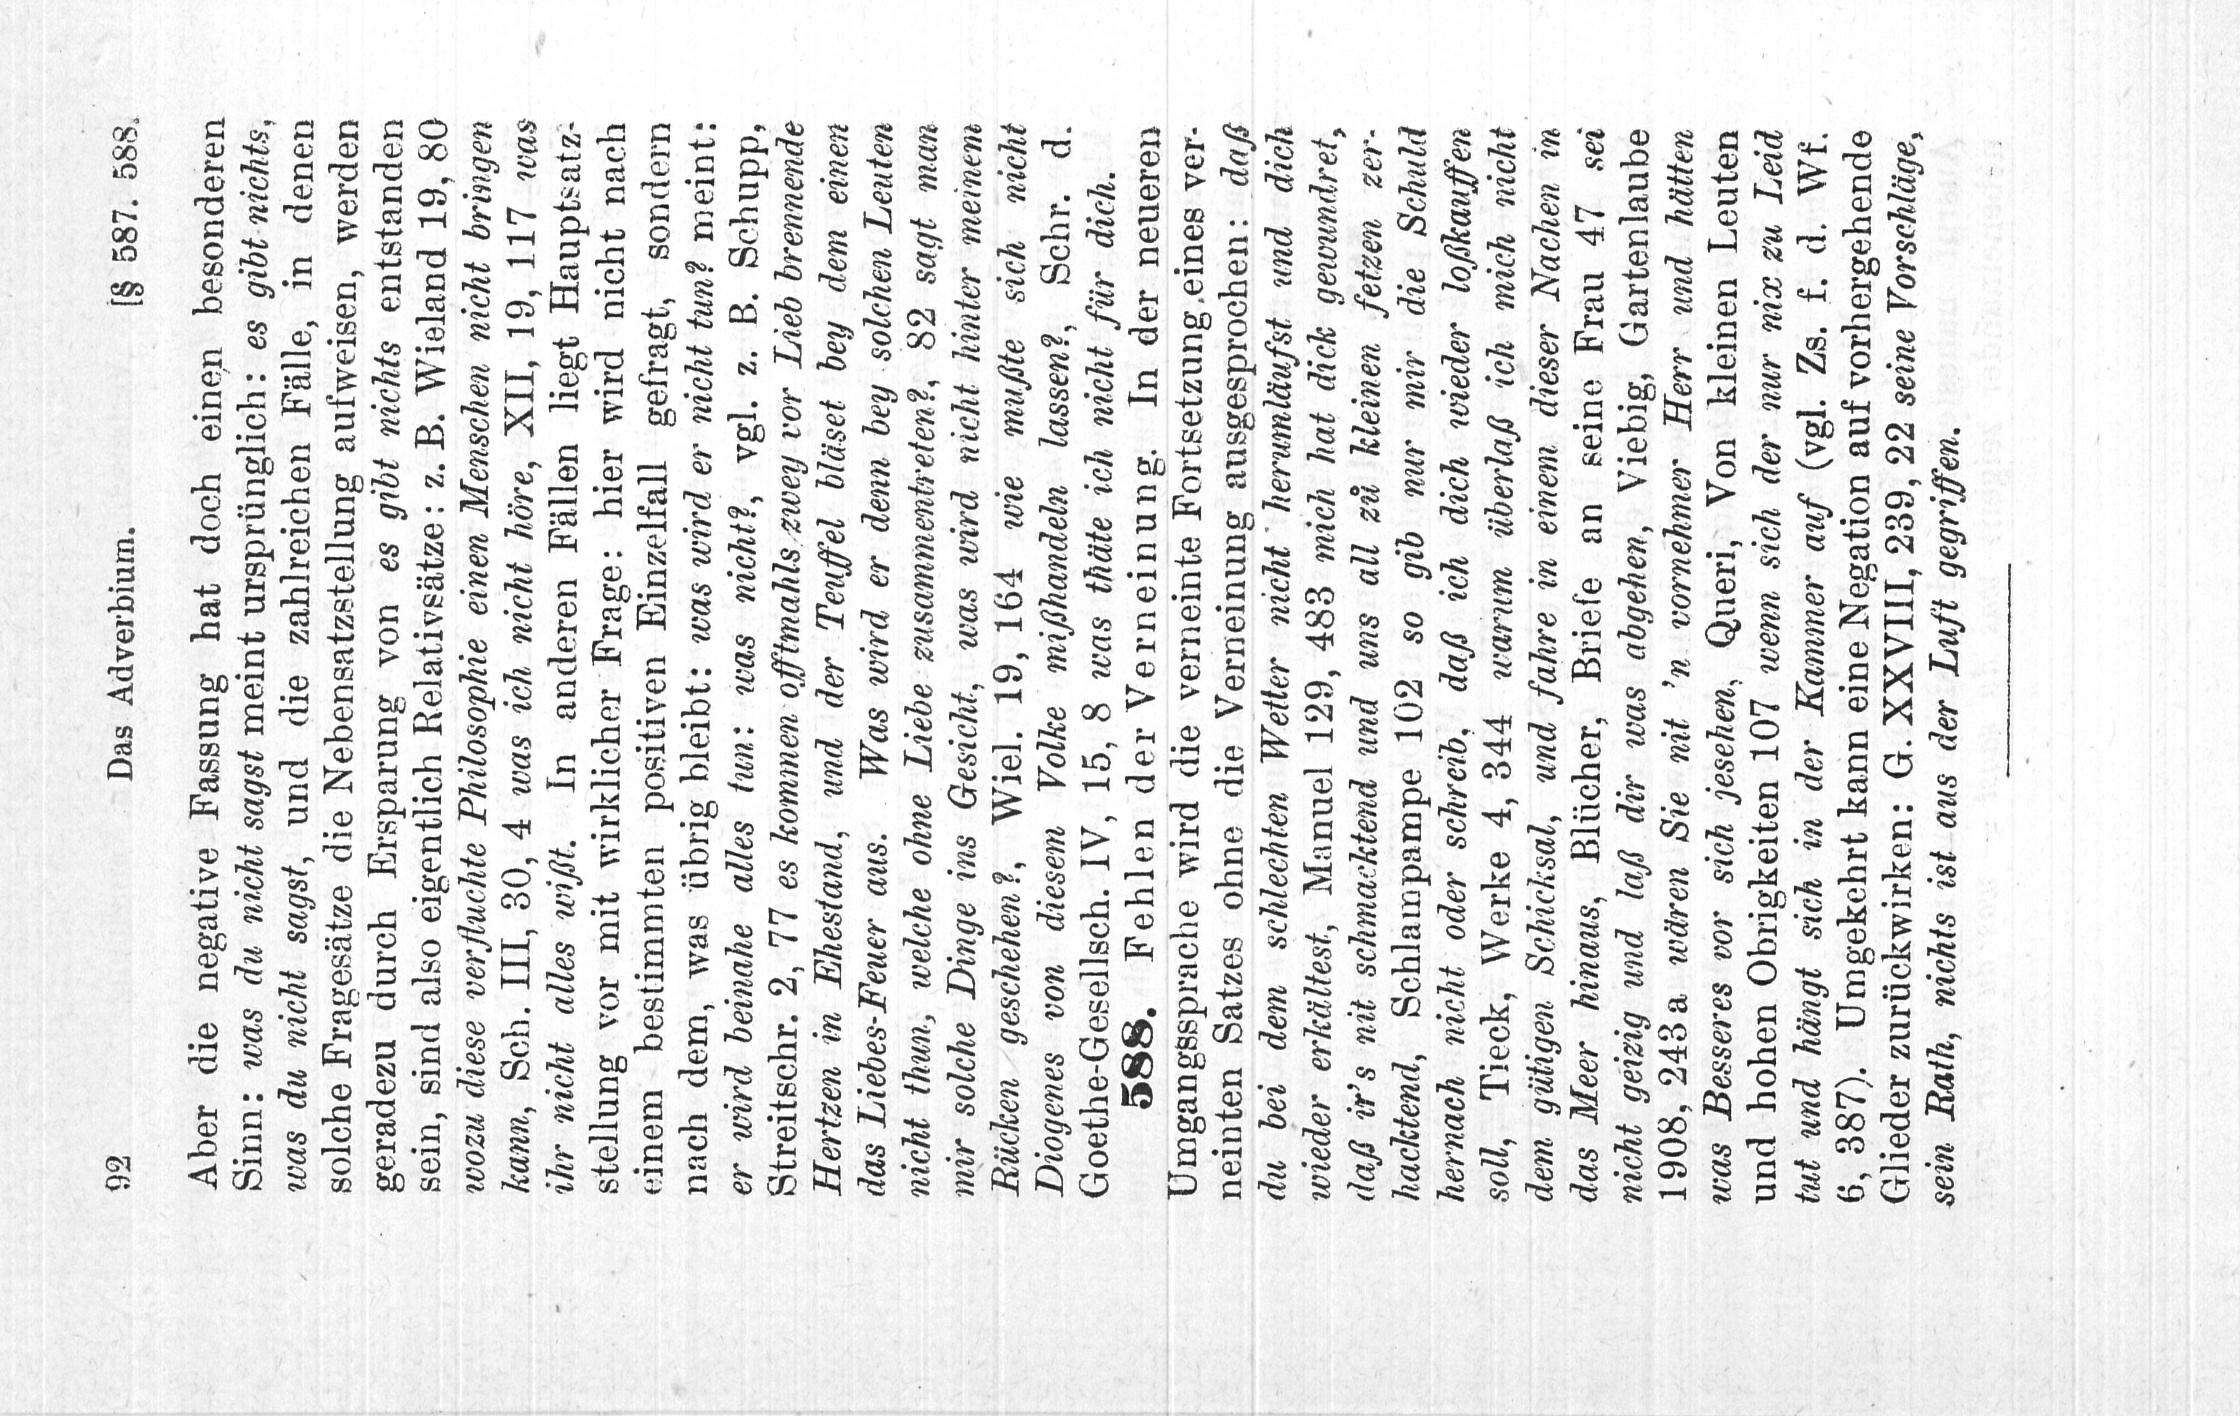 92 Das Adverbium. [§ 587. 588.
Aber die negative Fassung hat doch einen besonderen
Sinn: was du nicht sagst meint ursprünglich: es gibt nichts,
was du nicht sagst, und die zahlreichen Fälle, in denen
solche Fragesätze die Nebensatzstellung aufweisen, werden
geradezu durch Ersparung von es gibt nichts entstanden
sein, sind also eigentlich Relativsätze: z. B. Wieland 19, 80
wozu diese verfluchte Philosophie einen Menschen nicht bringen
kann, Sch. III, 30, 4 was ich nicht höre, XII, 19, 117 was
ihr nicht alles wißt. In anderen Fällen liegt Hauptsatz-
stellung vor mit wirklicher Frage: hier wird nicht nach
einem bestimmten positiven Einzelfall gefragt, sondern
nach dem, was übrig bleibt: was wird er nicht tun? meint:
er wird beinahe alles tun: was nicht?, vgl. z. B. Schupp,
Streitschr. 2, 77 es kommen offtmahls zwey vor Lieb brennende
Hertzen in Ehestand, und der Teuffel bläset bey dem einen
das Liebes-Feuer aus. Was wird er denn bey solchen Leuten
nicht thun, welche ohne Liebe zusammentreten?, 82 sagt man
mir solche Dinge ins Gesicht, was wird nicht hinter meinem
Rücken geschehen?, Wiel. 19, 164 wie mußte sich nicht
Diogenes von diesem Volke mißhandeln lassen?, Schr. d.
Goethe-Gesellsch. IV, 15, 8 was thäte ich nicht für dich.
588. Fehlen der Verneinung. In der neueren
Umgangssprache wird die verneinte Fortsetzung eines ver-
neinten Satzes ohne die Verneinung ausgesprochen: daß
du bei dem schlechten Wetter nicht herumläufst und dich
wieder erkältest, Manuel 129, 483 mich hat dick gewundret,
daß ir's nit schmacktend und uns all zů kleinen fetzen zer-
hacktend, Schlampampe 102 so gib nur mir die Schuld
hernach nicht oder schreib, daß ich dich wieder loßkauffen
soll, Tieck, Werke 4, 344 warum überlaß ich mich nicht
dem gütigen Schicksal, und fahre in einem dieser Nachen in
das Meer hinaus, Blücher, Briefe an seine Frau 47 sei
nicht geizig und laß dir was abgehen, Viebig, Gartenlaube
1908, 243 a wären Sie mit 'n vornehmer Herr und hätten
was Besseres vor sich jesehen, Queri, Von kleinen Leuten
und hohen Obrigkeiten 107 wenn sich der nur nix zu Leid
tut und hängt sich in der Kammer auf (vgl. Zs. f. d. Wf.
6, 387). Umgekehrt kann eine Negation auf vorhergehende
Glieder zurückwirken: G. XXVIII, 239, 22 seine Vorschläge,
sein Rath, nichts ist aus der Luft gegriffen.